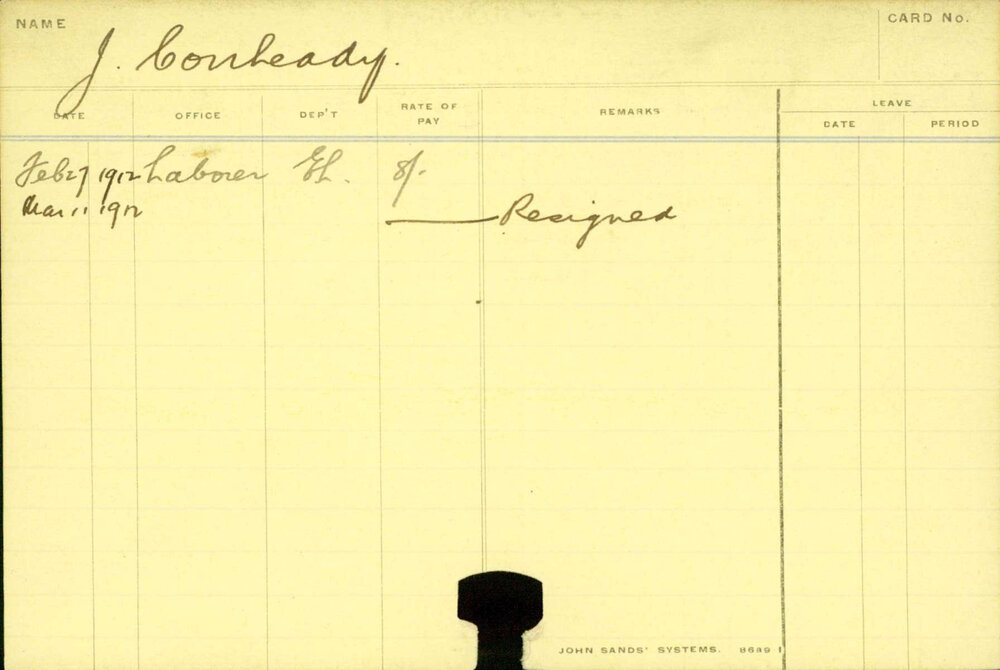 NAME
CARD No.
J. Conheady.
DATE OFFICE DEP'T RATE OF PAY REMARKS LEAVE
DATE PERIOD
Feb 27 1912 Laborer EL. 8/-
Mar 11 1912 Resigned
JOHN SANDS' SYSTEMS. 8689